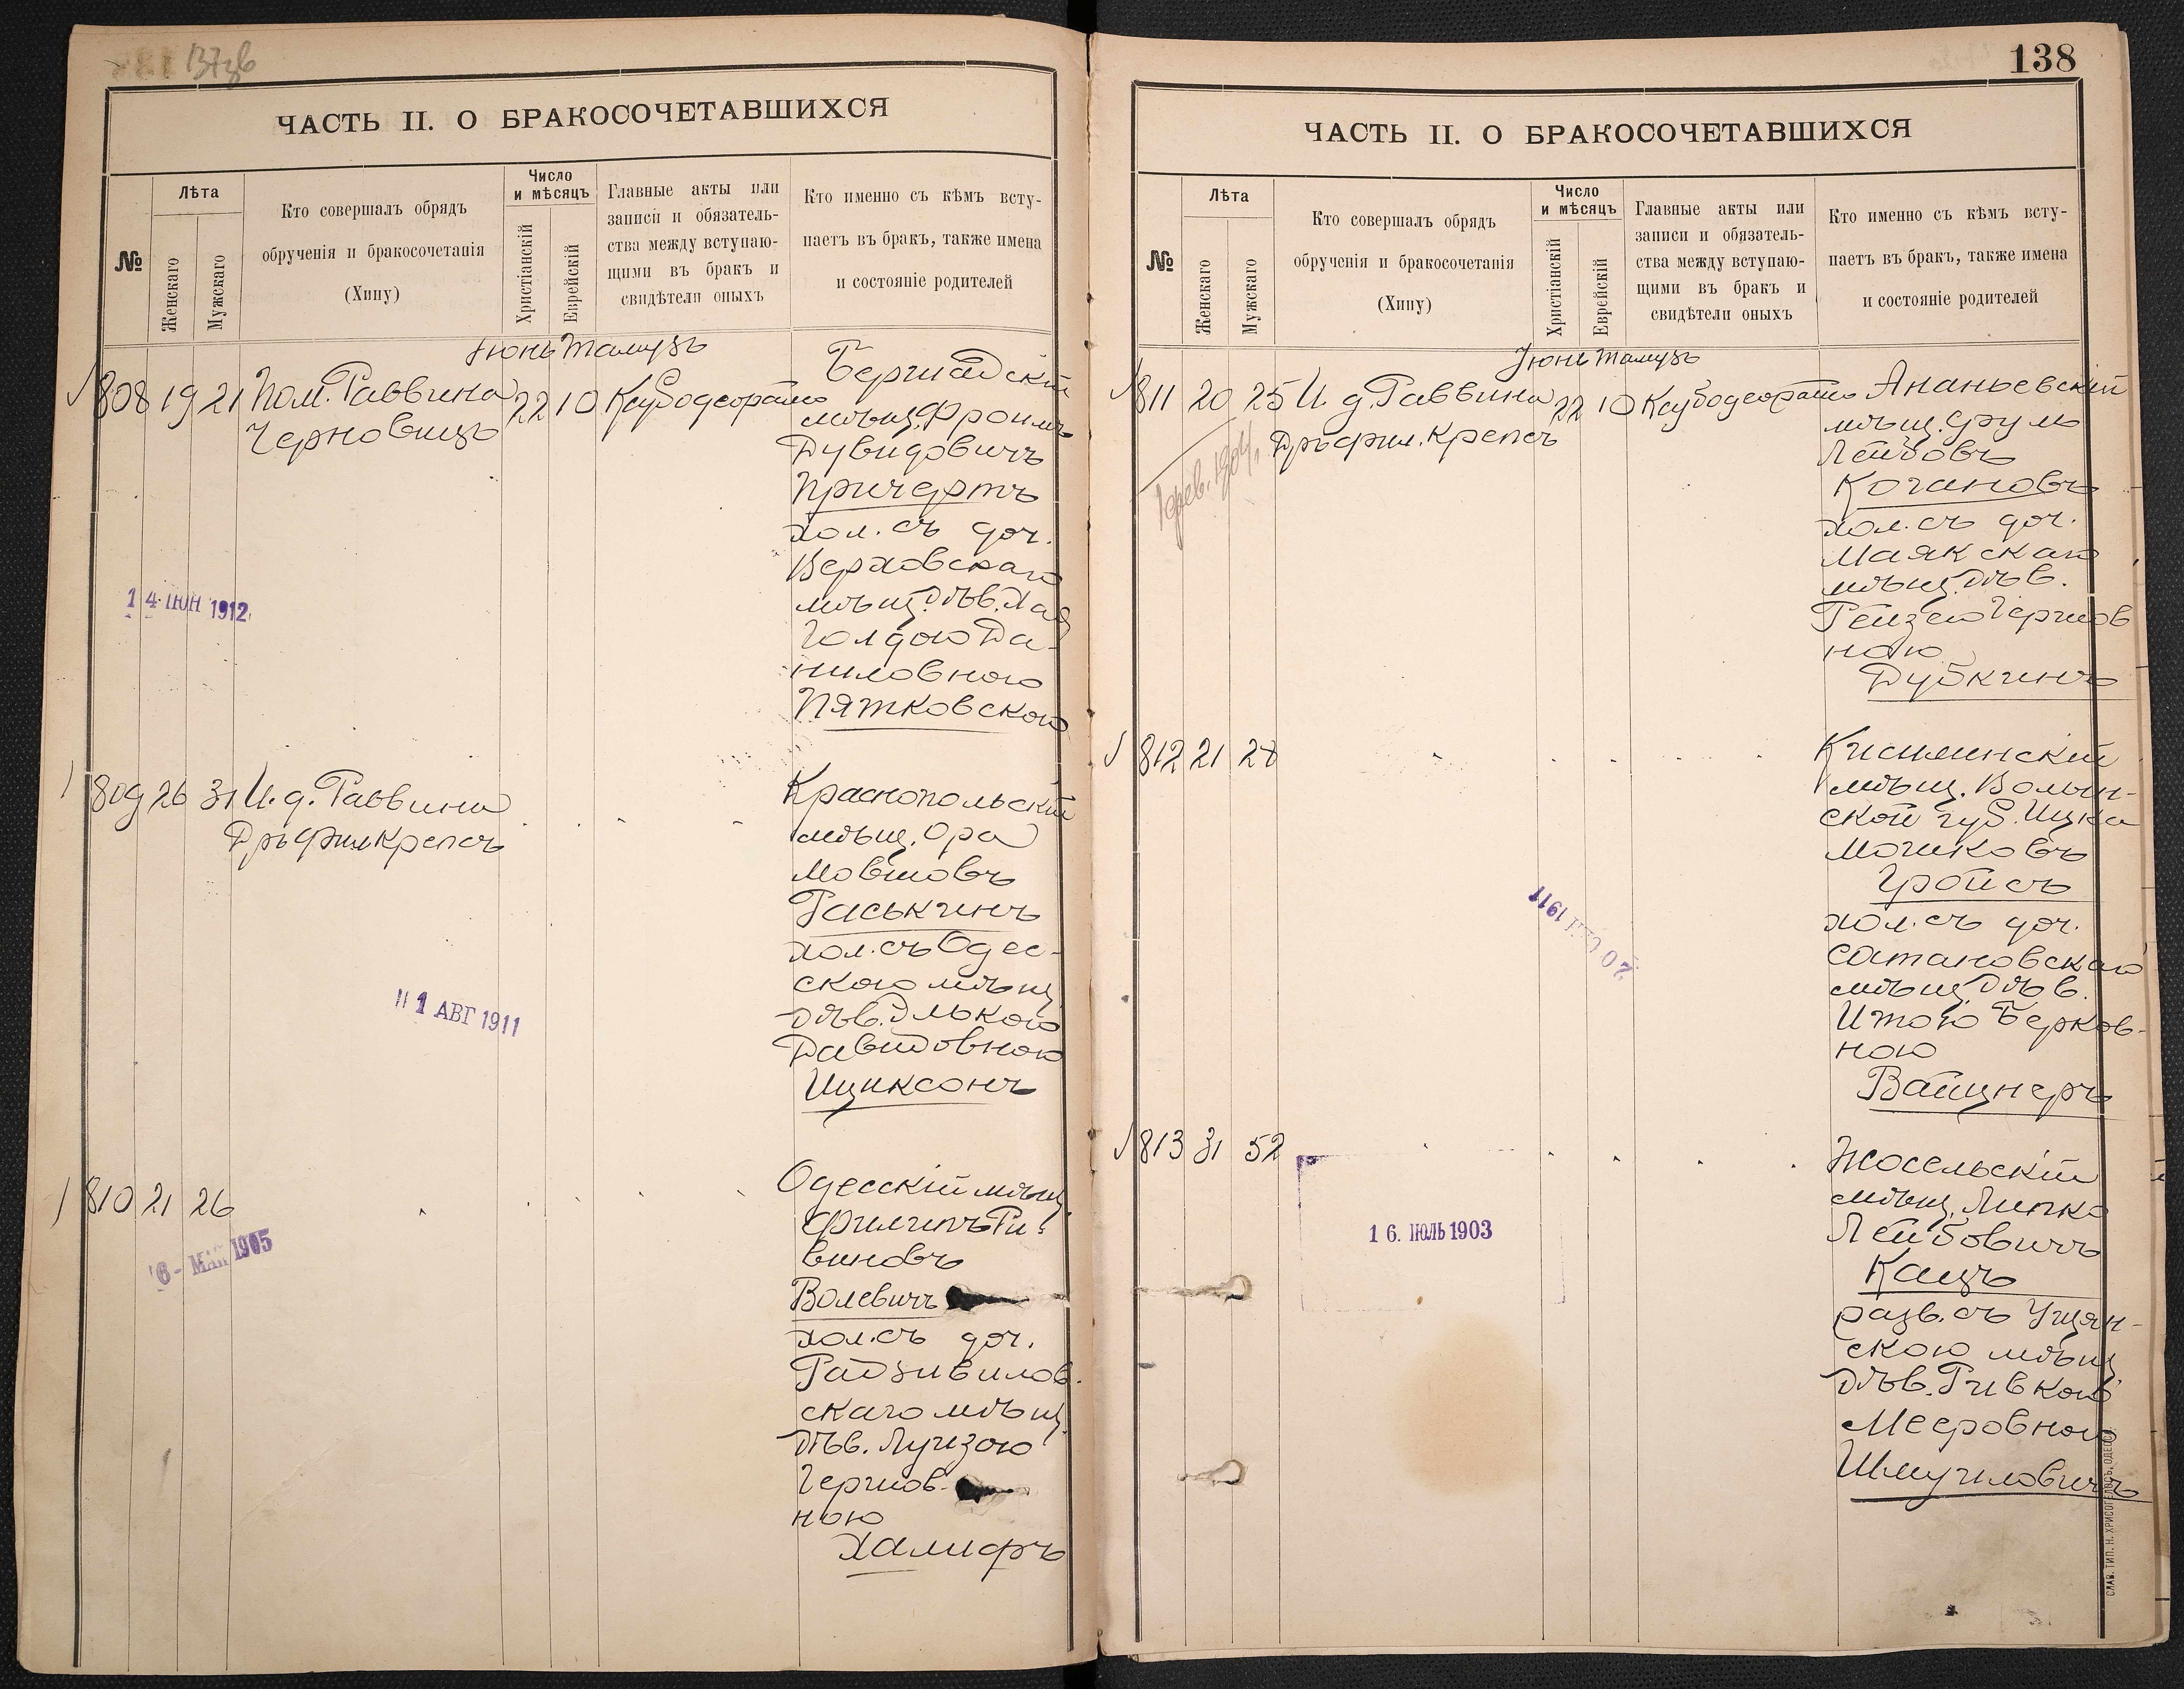 137об
ЧАСТЬ II. О БРАКОСОЧЕТАВШИХСЯ
№
Лѣта
Женскаго
Мужскаго
Кто совершалъ обрядъ
обрученія и бракосочетанія
(Хипу)
Число
и мѣсяцъ
Христіанскій
Еврейскій
Главные акты или
записи и обязатель-
ства между вступаю-
щими въ бракъ и
свидѣтели оныхъ
Кто именно съ кѣмъ всту-
паетъ въ бракъ, также имена
и состояніе родителей
Іюнь Тамузъ
808 19 21 Пом. Раввина
Черновицъ
22 10
мѣщ. Фроимъ
Дувидовичъ
Причертъ
хол. съ доч.
Верховскаго
мѣщ. дѣв. Хая
Голдою Да-
ниловною
Пятковскою
14 ІЮН 1912
809 26 31 И. д. Раввина
Дръ фил Крепсъ
Краснопольскій
мѣщ. Ора
Мовшовъ
Раськинъ
хол. съ Одес-
скою мѣщ
дѣв. Элькою
Давидовною
Ициксонъ
11 АВГ 1911
810 21 26
Одесскій мѣщ
Филипъ Ри-
виновъ
Волевичъ
хол. съ доч.
Радзивилов-
скаго мѣщ.
дѣв. Луизою
Гершов-
ною
Халифъ
6 - МАЙ 1905
138
ЧАСТЬ II. О БРАКОСОЧЕТАВШИХСЯ
№
Лѣта
Женскаго
Мужскаго
Кто совершалъ обрядъ
обрученія и бракосочетанія
(Хипу)
Число
и мѣсяцъ
Христіанскій
Еврейскій
Главные акты или
записи и обязатель-
ства между вступаю-
щими въ бракъ и
свидѣтели оныхъ
Кто именно съ кѣмъ всту-
паетъ въ бракъ, также имена
и состояніе родителей
Іюнь Тамузъ
811 20 25 И. д. Раввина
Дръ фил. Крепсъ
22 10
Ананьевскій
мѣщ. Срулъ
Лейбовъ
Когановъ
хол. съ доч.
Маякскаго
мѣщ. дѣв.
Рейзею Гершов
ною
Дубкинъ
1 фев. 1904
812 21 28
мѣщ. Волын-
ской губ. Ицка
Мошковъ
Гройсъ
хол. съ доч.
Сатановскаго
мѣщ. дѣв.
Итою Берков-
ною
Вайцнеръ
20 СЕН 1911
813 31 52
Жосельскій
мѣщ. Липко
Лейбовичъ
Кацъ
разв. съ Уцян-
скою мѣщ
дѣв. Ривкою
Мееровною
Шмуиловичъ
16. ІЮЛЬ 1903
СЛАВ. ТИП. Н. ХРИСОГЕЛОСЪ, ОДЕССА